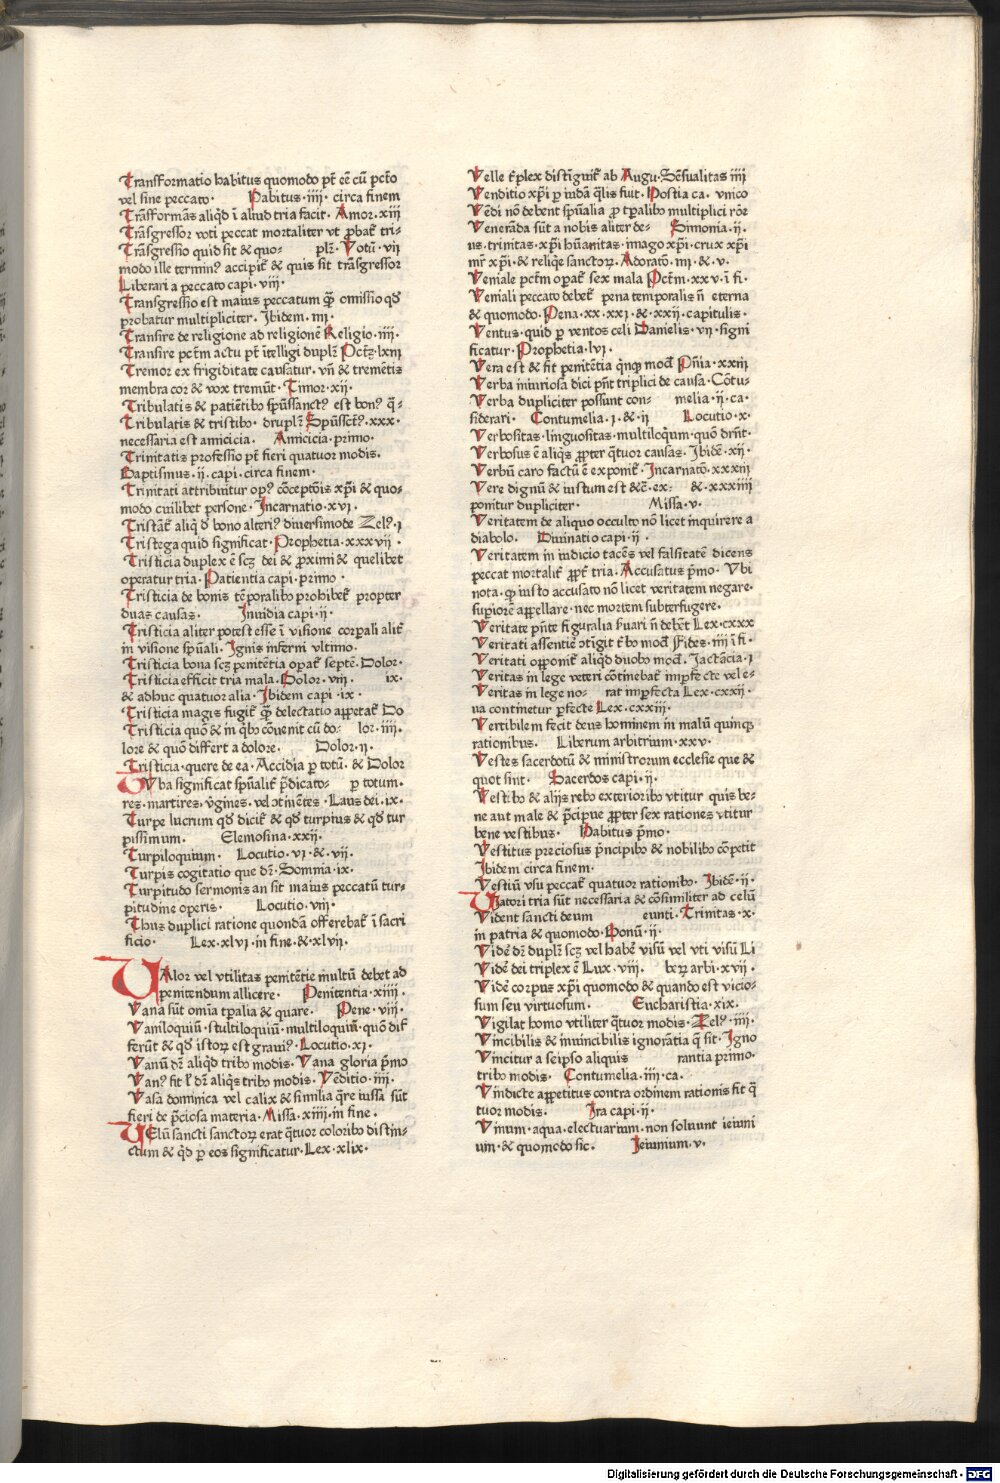 Transformatio habitus quomodo pt̄ eē cū pctō
vel sine peccato. Habitus.iiii. circa finem
Trāsformās aliqd̄ ī aliud tria facit. Amor.xiii
Trāsgressor voti peccat mortaliter vt ꝓbat᷑ tri-
Trāsgressio quid sit & quo- plr̄. Votū.vii
modo ille terminꝰ accipit᷑ & quis sit trāsgressor
Liberari a peccato capi.viii.
Transgressio est maius peccatum qᷓ omissio qd̄
probatur multipliciter. Ibidem.iiii.
Transire de religione ad religionē Religio.iiii.
Transire pctm̄ actu pt̄ ītelligi duplr̄ Pctꝫ.lxiii
Tremor ex frigiditate causatur. vn̄ & tremētis
membra cor & vox tremūt. Timor.xii.
Tribulatis & patiētibo sp̄ussanctꝰ est bonꝰ q̄-
Tribulatis & tristibo. druplr̄ Sp̄ussct̄ꝰ.xxx.
necessaria est amicicia. Amicicia.primo.
Trinitatis professio pt̄ fieri quatuor modis.
Baptismus.ii.capi.circa finem.
Trinitati attribuitur opꝰ cōceptōis xp̄i & quo-
modo cuilibet persone. Incarnatio.xvi.
Tristāt᷑ aliq̄ d̄ bono alteriꝰ diuersimode Zelꝰ.i
Tristega quid significat. Prophetia.xxxvii.
Tristicia duplex ē scꝫ dei & ꝓximi & quelibet
operatur tria. Patientia capi.primo.
Tristicia de bonis tēporalibo prohibet᷑ propter
duas causas. Inuidia capi.ii.
Tristicia aliter potest esse ī visione corꝑali alit᷑
in visione sp̄uali. Ignis inferni vltimo.
Tristicia bona scꝫ penitētia oꝑat᷑ septē. Dolor.
Tristicia efficit tria mala. Dolor.viii. ix.
& adhuc quatuor alia. Ibidem capi.ix.
Tristicia magis fugit᷑ qᷓ delectatio appetat᷑ Do
Tristicia quō & in qbo cōuenit cū do- lor.iiii.
lore & quō differt a dolore. Dolor.ii.
Tristicia.quere de ea. Accidia ꝑ totū. & Dolor
Tuba significat sp̄ualit᷑ p̄dicato- ꝑ totum.
res. martires. v̄gines. vel ɔtinētes. Laus dei.ix.
Turpe lucrum qd̄ dicit᷑ & qd̄ turpius & qd̄ tur
pissimum. Elemosina.xxii.
Turpiloquium. Locutio.vi.& vii.
Turpis cogitatio que dr̄. Somnia.ix.
Turpitudo sermonis an sit maius peccatū tur-
pitudine operis. Locutio.viii.
Thus duplici ratione quondā offerebat᷑ ī sacri
ficio. Lex.xlvi.in fine.& xlvii.
VAlor vel vtilitas penitētie multū debet ad
penitendum allicere. Penitentia.xiiii.
Vana sūt omia tꝑalia & quare. Pene.viii.
Vaniloquiū. stultiloquiū. multiloquiū. quō dif
ferūt & qd̄ istoꝝ est grauiꝰ. Locutio.xi.
Vanū dr̄ aliqd̄ tribo modis. Vana gloria p̄mo
Vanꝰ sit ł dr̄ aliqs tribo modis. Vēditio.iiii.
Vasa dominica vel calix & similia q̄re iussa sūt
fieri de p̄ciosa materia. Missa.xiiii.in fine.
VElū sancti sanctoꝝ erat q̄tuor coloribo distin-
ctum & qd̄ ꝑ eos significatur. Lex.xlix.
Velle t᷑plex distīguit᷑ ab Augu. Sēsualitas iiii
Venditio xp̄i ꝑ iudā q̄lis fuit. Postia ca. vnico
Vēdi nō debent sp̄ualia ꝓ tꝑalibo multiplici rōe
Venerāda sūt a nobis aliter de- Simonia.ii.
us. trinitas. xp̄i hūanitas. imago xp̄i. crux xp̄i
mr̄ xp̄i. & reliqe sanctoꝝ. Adoratō. iiii. & v.
Veniale pctm̄ oꝑat᷑ sex mala Pctm̄.xxv.ī fi.
Veniali peccato debet᷑ pena temporalis n̄ eterna
& quomodo. Pena.xx.xxi.& xxii.capitulis.
Ventus. quid ꝑ ventos celi Danielis.vii signi
ficatur. Prophetia.lvi.
Vera est & sit penitētia q̄nqꝫ mod᷑ Pn̄ia.xxiii
Verba iniuriosa dici pn̄t triplici de causa. Cōtu-
Verba dupliciter possunt con- melia.ii.ca.
siderari. Contumelia.i.& ii Locutio.x.
Verbositas. linguositas. multiloqum. quō dr̄nt.
Verbosus ē aliqs ꝓpter q̄tuor causas. Ibidē.xii.
Verbū caro factū ē exponit᷑. Incarnatō.xxxiii
Vere dignū & iustum est &c̄.ex. & xxxiiii
ponitur dupliciter. Missa.v.
Veritatem de aliquo occulto nō licet inquirere a
diabolo. Diuinatio capi.ii.
Veritatem in iudicio tacēs vel falsitatē dicens
peccat mortalit᷑ ꝓpt᷑ tria. Accusatus p̄mo. Vbi
nota. ꝙ iusto accusato nō licet veritatem negare.
supiorē appellare. nec mortem subterfugere.
Veritate pn̄te figuralia ſuari n̄ debēt Lex.cxxx
Veritati assentiē ɔtīgit t᷑bo mod᷑ Fides.iiii ī fi.
Veritati opponit᷑ aliqd̄ duobo mod᷑. Jactācia.i
Veritas in lege veteri cōtinebat᷑ imꝑfecte vel e-
Veritas in lege no- rat imꝑfecta Lex.cxxii.
ua continetur ꝑfecte Lex.cxxiii.
Vertibilem fecit deus hominem in malū quinqꝫ
rationibus. Liberum arbitrium.xxv.
Vestes sacerdotū & ministrorum ecclesie que &
quot sint. Sacerdos capi.ii.
Vestibo & alijs rebo exterioribo vtitur quis be-
ne aut male & p̄cipue ꝓpter sex rationes vtitur
bene vestibus. Habitus p̄mo.
Vestitus preciosus p̄ncipibo & nobilibo cōpetit
Ibidem circa finem.
Vestiū vsu peccat᷑ quatuor rationibo. Ibidē.ii.
VIatori tria sūt necessaria & cōsimiliter ad celū
Vident sancti deum eunti. Trinitas.x.
in patria & quomodo. Bonū.ii.
Vidē dr̄ duplr̄ scꝫ vel habē visū vel vti visū Li
Vidē dei triplex ē Lux.viii. beꝝ arbi.xvii.
Vidē corpus xp̄i quomodo & quando est vicio-
sum seu virtuosum. Eucharistia.xix.
Vigilat homo vtiliter q̄tuor modis. Zelꝰ.iiii.
Vincibilis & inuincibilis ignorātia q̄ sit. Igno
Vincitur a seipso aliquis rantia primo.
tribo modis. Contumelia.iii.ca.
Vindicte appetitus contra ordinem rationis sit q̄
tuor modis. Ira capi.ii.
Vinum. aqua. electuarium. non soluunt ieiuni
um. & quomodo sic. Ieiunium.v.
Digitalisierung gefördert durch die Deutsche Forschungsgemeinschaft - DFG